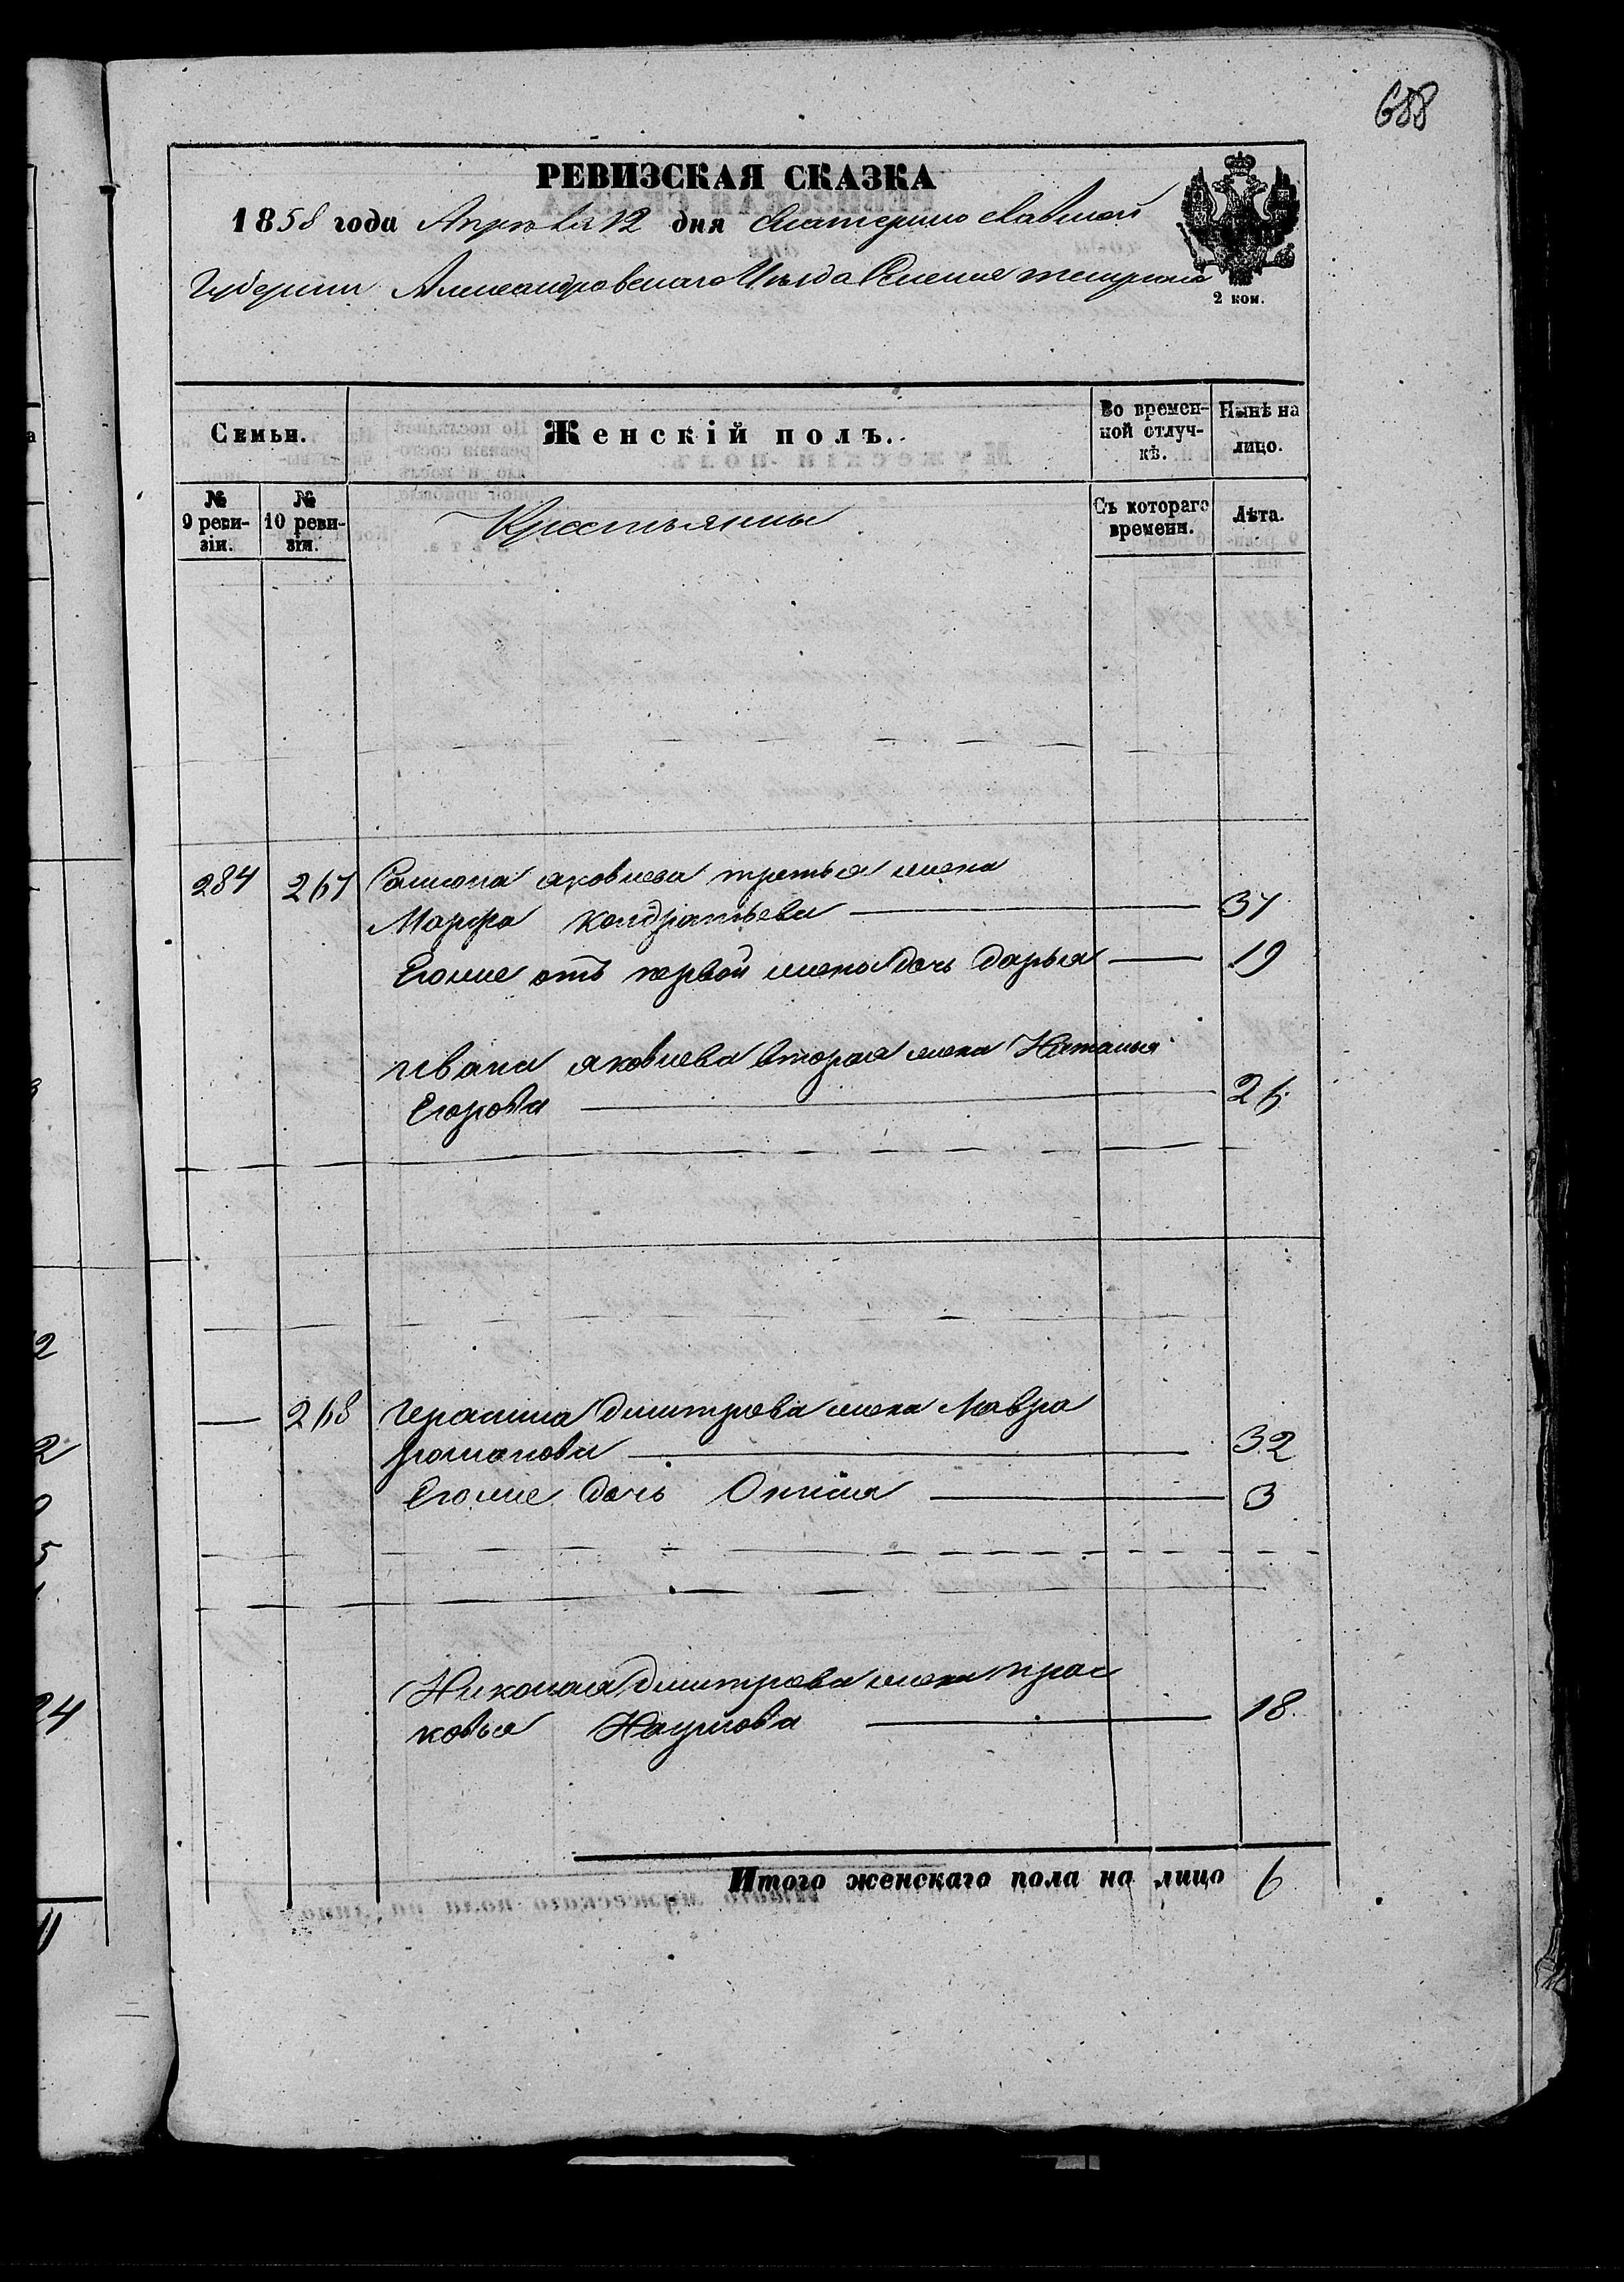 688
РЕВИЗСКАЯ СКАЗКА
1858 года Апреля 12 дня Екатеринославской
Губернии Александровскаго Уезда Селение
2 коп.
Семьи.
Женскій полъ.
Во времен-
ной отлуч-
кѣ.
Нынѣ на
лицо.
№
9 реви-
зіи.
№
10 реви-
зіи.
Крестьянны
Съ котораго
времени.
Лѣта.
284 267 Самсона яковлева третья жена
Марфа Кондратьева 37
Егоже отъ первой жены дочь дарья 19
Ивана яковлева вторая жена Наталья
Егорова 26
268 Герасима дмитрева жена Мавра
романова 32
Егоже дочь 3
Николая дмитрева жена прас
ковья Наумова 18
Итого женскаго пола на лицо 6